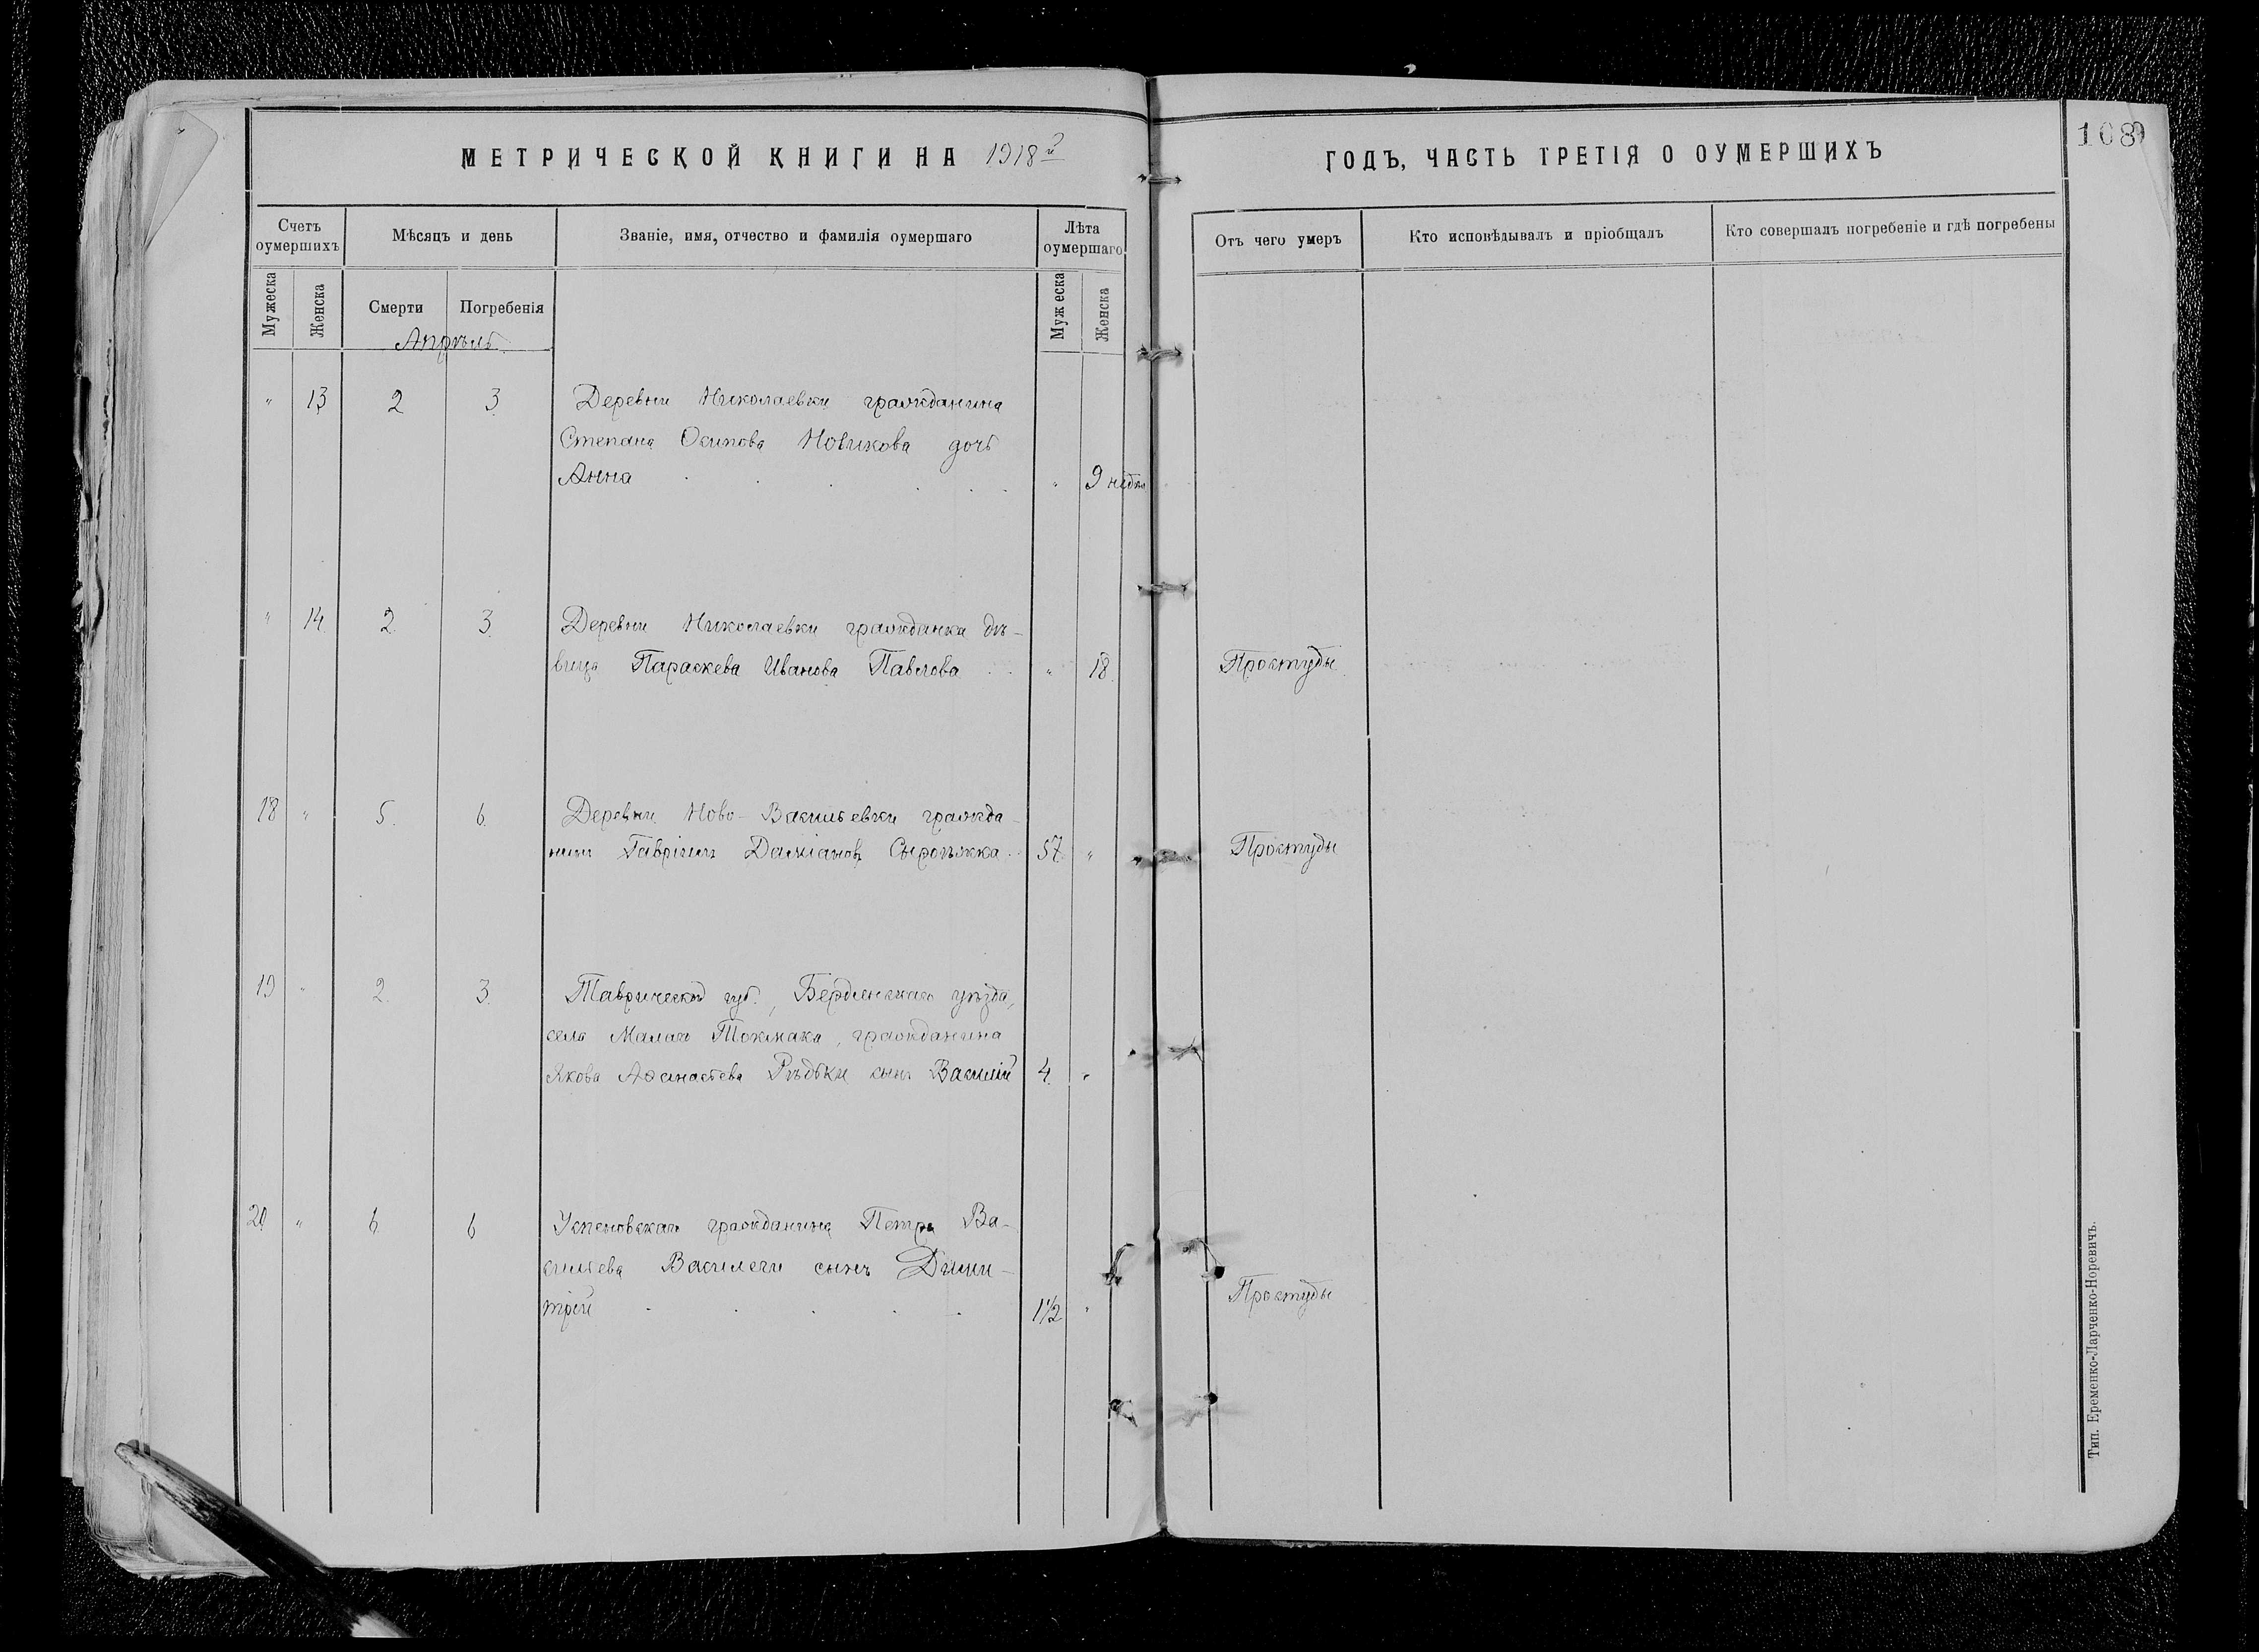 МЕТРИЧЕСКОЙ КНИГИ НА 1918й
ГОДЪ, ЧАСТЬ ТРЕТІЯ О ОУМЕРШИХЪ
108
Счетъ оумершихъ
Мѣсяцъ и день
Званіе, имя, отчество и фамилія оумершаго
Лѣта оумершаго
Отъ чего умеръ
Кто исповѣдывалъ и пріобщалъ
Кто совершалъ погребеніе и гдѣ погребены
Мужеска
Женска
Смерти
Погребенія
Муж еска
Женска
Апрѣль
" 13 2 3 Деревни Николаевки гражданина
Степана Осипова Новикова дочь
Анна . . . . . . " 9 нѣдѣл
" 14 2 3 Деревни Николаевки гражданка дѣ-
вица Параскева Иванова Павлова . . " 18 Простуды
18 " 5 6 Деревни Ново-Васильевки гражда-
нинъ Гавріилъ Даміановъ 57 " Простуды
19 " 2 3 Таврической губ., Бердянскаго уѣзда,
села Малаго Токмака, гражданина
Якова Афанасьева Рѣдьки сынъ Василій 4 "
20 " 6 6 Успеновскаго гражданина Петра Ва-
сильева Василеги сынъ Дими-
трій . . . . . 1 1/2 " Простуды
Тип. Еременко-Ларченко-Норевичъ.